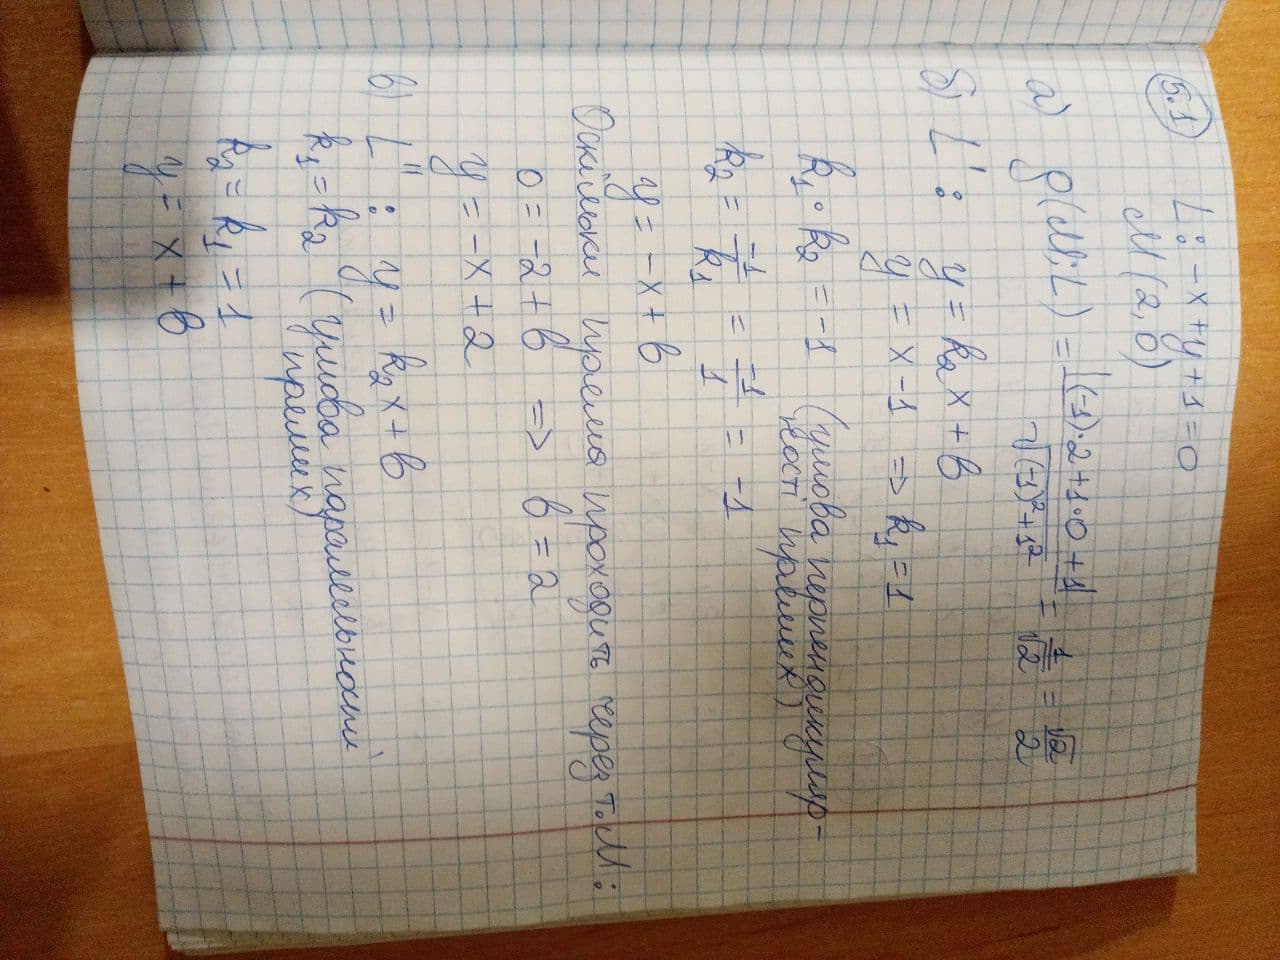 5.1 L: -x+y+1=0
M(2,0)
а) ρ(M;L) = |(-1)·2+1·0+1| / √((-1)²+1²) = 1/√2 = √2/2
б) L': y = k₂x + b
y = x-1 => k₁=1
k₁·k₂ = -1 (умова перпендикуляр-
ності прямих)
k₂ = -1/k₁ = -1/1 = -1
y = -x + b
Оскільки пряма проходить через т. M:
0 = -2 + b => b = 2
y = -x + 2
в) L'': y = k₂x + b
k₁ = k₂ (умова паралельності
прямих)
k₂ = k₁ = 1
y = x + b